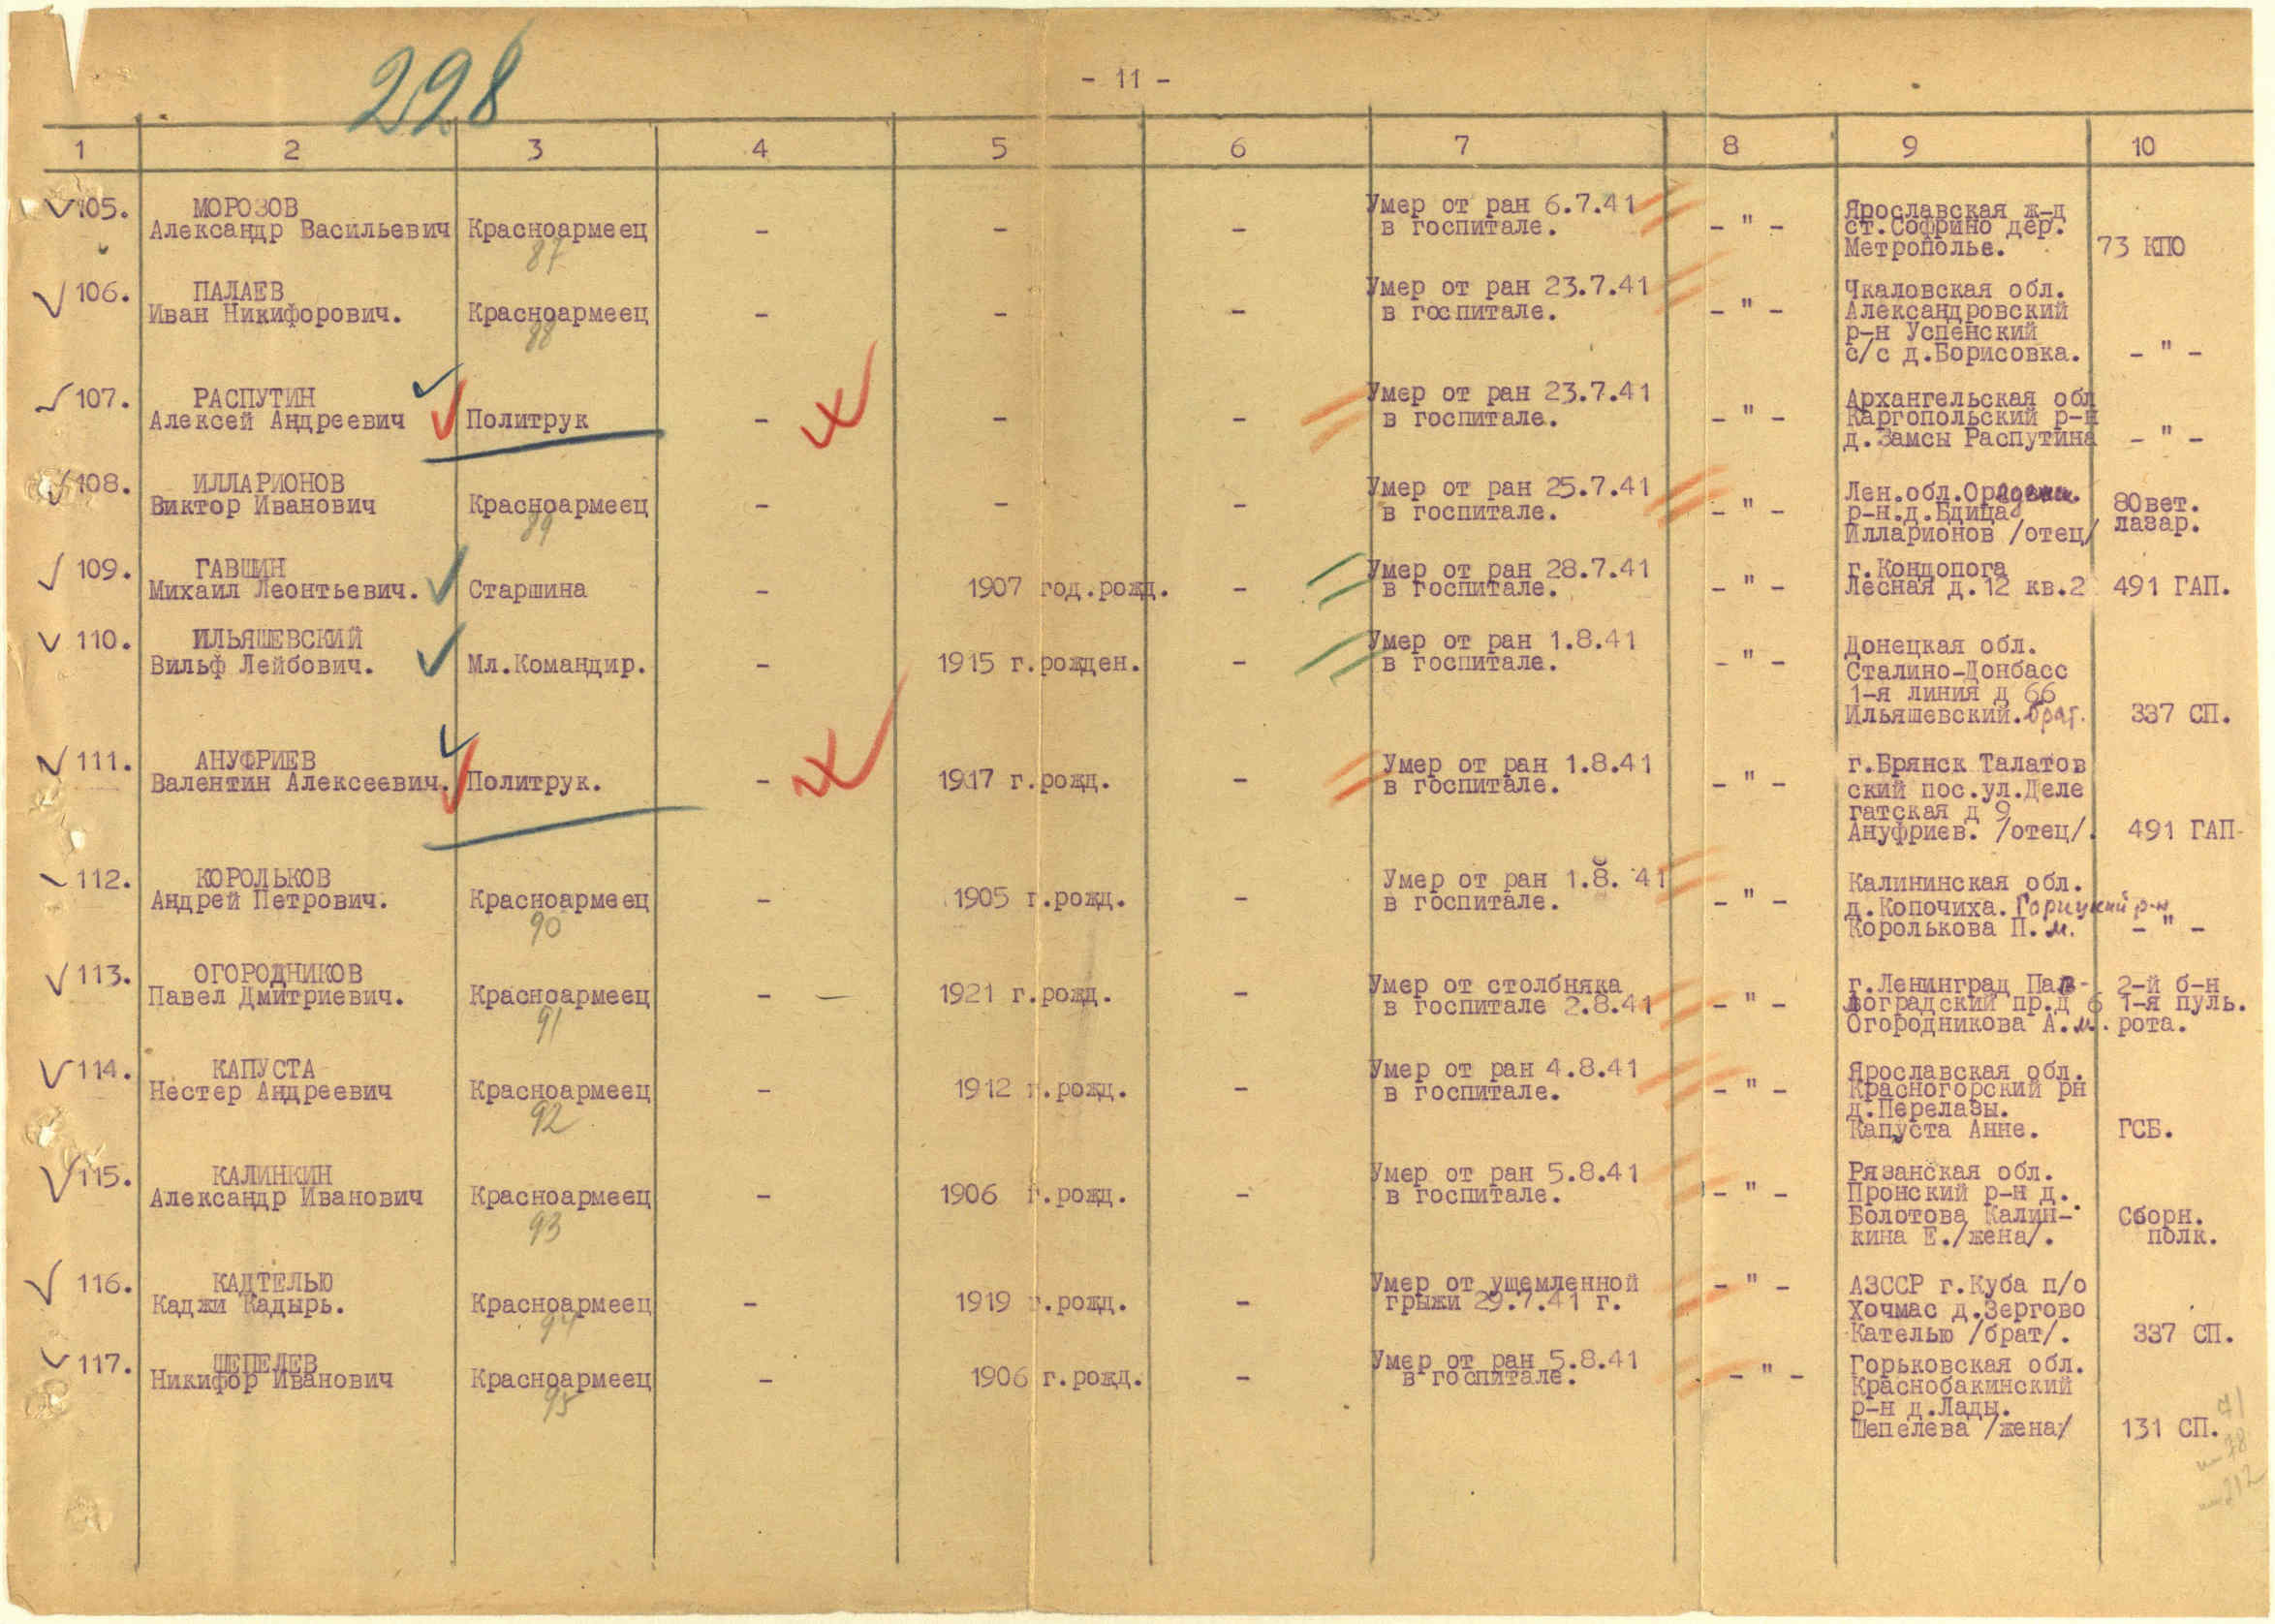 228
- 11 -
1 2 3 4 5 6 7 8 9 10
105. МОРОЗОВ
Александр Васильевич Красноармеец - - -
87
Умер от ран 6.7.41
в госпитале. - " -
Ярославская ж-д
ст.Софрино дер.
Метрополье. 73 КПО
106. ПАЛАЕВ
Иван Никифорович. Красноармеец - - -
88
Умер от ран 23.7.41
в госпитале. - " -
Чкаловская обл.
Александровский
р-н Успенский
с/с д.Борисовка. - " -
107. РАСПУТИН
Алексей Андреевич Политрук - - -
Умер от ран 23.7.41
в госпитале. - " -
Архангельская обл
Каргопольский р-н
д.Замсы Распутина - " -
108. ИЛЛАРИОНОВ
Виктор Иванович Красноармеец - - -
89
Умер от ран 25.7.41
в госпитале. - " -
Лен.обл.
р-н.д.Бдица
Илларионов /отец/
80вет.
лазар.
109. ГАВШИН
Михаил Леонтьевич. Старшина - 1907 год.рожд. -
Умер от ран 28.7.41
в госпитале. - " -
г.Кондопога
Лесная д.12 кв.2 491 ГАП.
110. ИЛЬЯШЕВСКИЙ
Вильф Лейбович. Мл.Командир. - 1915 г.рожден. -
Умер от ран 1.8.41
в госпитале. - " -
Донецкая обл.
Сталино-Донбасс
1-я линия д 66
Ильяшевский.брат. 337 СП.
111. АНУФРИЕВ
Валентин Алексеевич. Политрук. - 1917 г.рожд. -
Умер от ран 1.8.41
в госпитале. - " -
г.Брянск Талатов
ский пос.ул.Деле
гатская д 9
Ануфриев. /отец/. 491 ГАП-
112. КОРОЛЬКОВ
Андрей Петрович. Красноармеец - 1905 г.рожд. -
90
Умер от ран 1.8. 41
в госпитале. - " -
Калининская обл.
д.Копочиха. Горицкий р-н
Королькова П.м. - " -
113. ОГОРОДНИКОВ
Павел Дмитриевич. Красноармеец - 1921 г.рожд. -
91
Умер от столбняка
в госпитале 2.8.41 - " -
г.Ленинград Пав-
лоградский пр.д 6
Огородникова А.м.
2-й б-н
1-я пуль.
рота.
114. КАПУСТА
Нестер Андреевич Красноармеец - 1912 г.рожд. -
92
Умер от ран 4.8.41
в госпитале. - " -
Ярославская обл.
Красногорский рн
д.Перелазы.
Капуста Анне. ГСБ.
115. КАЛИНКИН
Александр Иванович Красноармеец - 1906 г.рожд. -
93
Умер от ран 5.8.41
в госпитале. - " -
Рязанская обл.
Пронский р-н д.
Болотова Калин-
кина Е./жена/.
Сборн.
полк.
116. КАДТЕЛЬЮ
Каджи Кадырь. Красноармеец - 1919 г.рожд. -
94
Умер от ущемленной
грыжи 29.7.41 г. - " -
АЗССР г.Куба п/о
Хочмас д.Зергово
Кателью /брат/. 337 СП.
117. ШЕПЕЛЕВ
Никифор Иванович Красноармеец - 1906 г.рожд. -
95
Умер от ран 5.8.41
в госпитале. - " -
Горьковская обл.
Краснобакинский
р-н д.Лады.
Шепелева /жена/ 131 СП.